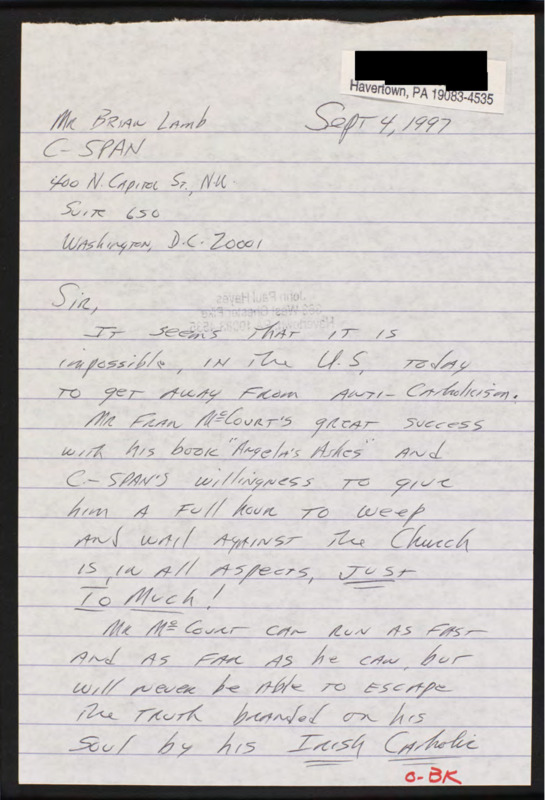 Havertown, PA 19083-4535
Mr Brian Lamb
Sept 4, 1997
C-SPAN
400 N. Capitol St., N.W.
Suite 650
Washington, D.C. 20001
Sir,
It seems that it is
impossible, in the U.S. today
to get away from anti-Catholicism.
Mr Fran McCourt's great success
with his book "Angela's Ashes" and
C-SPAN's willingness to give
him a full hour to weep
and wail against the Church
is, in all aspects, just
to much!
Mr McCourt can run as fast
and as far as he can, but
will never be able to escape
the truth branded on his
soul by his Irish Catholic
O-BK